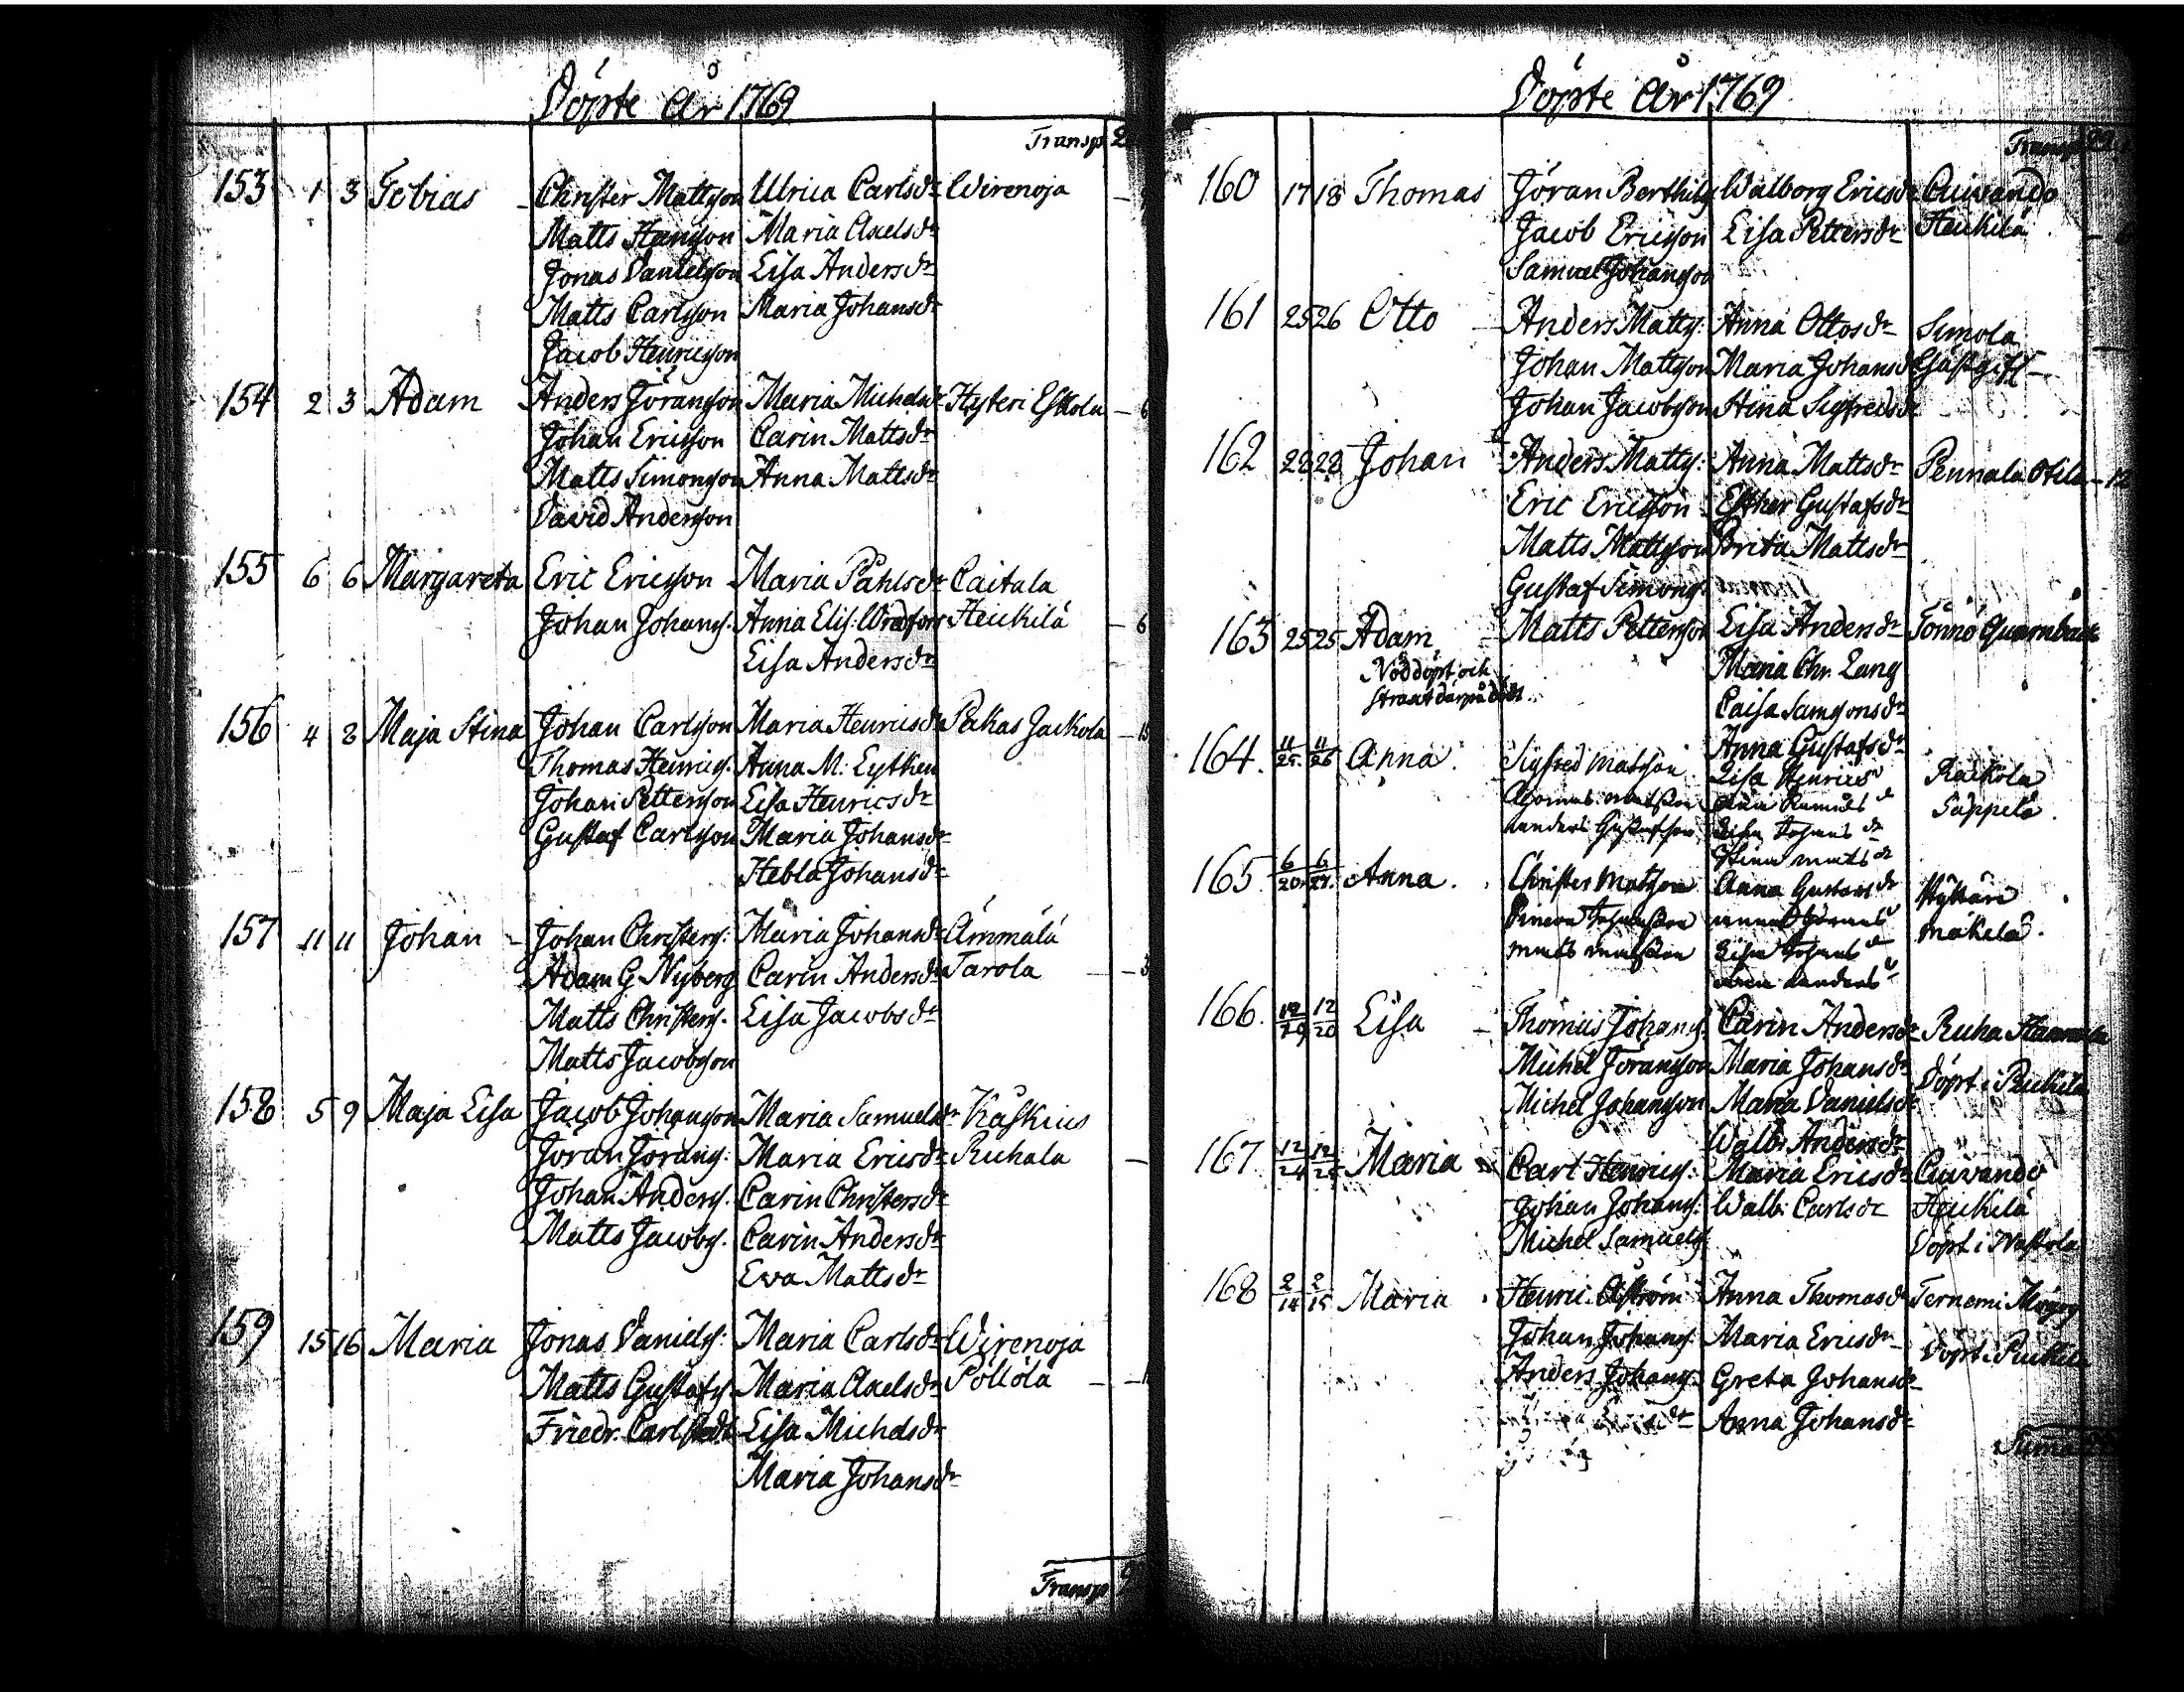 Döpte År 1769
Transp. 2
153 1 3 Tobias - Christer Mattsson Ulrica Carlsdr Wirenoja -
Matts Hansson Maria Axelsdr
Jonas Danielsson Lisa Andersdr
Matts Carlsson Maria Johansdr
Jacob Henricsson
154 2 3 Adam Anders Göransson Maria Michelsdr Hyteri Eskola - 6
Johan Ericsson Carin Mattsdr
Matts Simonsson Anna Mattsdr
David Andersson
155 6 6 Margareta Eric Ericsson Maria Påhlsdr Caitala
Johan Johanss. Anna Elis. Heickilä - 6
Lisa Andersdr
156 4 8 Maja Stina Johan Carlsson Maria Henricsdr Pakas Jackola - 15
Thomas Henrics. Anna M. Lytken
Johan Pettersson Lisa Henricsdr
Gustaf Carlsson Maria Johansdr
Hebla Johansdr
157 11 11 Johan - Johan Christers: Maria Johansdr Ammälä
Adam G. Nyberg Carin Andersdr Tarola - 3
Matts Christers. Lisa Jacobsdr
Matts Jacobsson
158 5 9 Maja Lisa Jacob Johansson Maria Samuelsdr Käskius
Göran Görans: Maria Ericsdr Ruhala -
Johan Anders. Carin Christersdr
Matts Jacobs. Carin Andersdr
Ewa Mattsdr
159 15 16 Maria Jonas Daniels: Maria Carlsdr Wirenoja
Matts Gustafs. Maria Axelsdr Pöllölä - 1
Friedr. Carlstedt Lisa Michelsdr
Maria Johansdr
Transp.
Döpte År 1769
Transp.
160 17 18 Thomas Göran Berthils Walborg Ericsdr Cuivando
Jacob Ericsson Lisa Pettersdr Heickilä -
Samuel Johansson
161 25 26 Otto - Anders Matts: Anna Ottosdr Simola
Johan Mattsson Maria Johansdr Gästgif. -
Johan Jacobsson Stina Sigfredsdr
162 28 28 Johan Anders Matts: Anna Mattsdr Pennala Otila - 12
Eric Ericsson Esther Gustafsdr
Matts Mattsson Brita Mattsdr
Gustaf Simons.
163 25 25 Adam, - Matts Pettersson Lisa Andersdr Tönnö Quarnback
Nöddöpt och Maria Chr. Lang
straxt därpå död. Caisa Samsonsdr
Anna Gustafsdr
164. 11/25. 11/26 Anna. Sigfred Matsson Lisa Henricsdr Raikola
Thomas Matsson Säppelä.
Anders Gustafsson Lisa Johansdr
Stina Matsdr
165. 6/20. 6/27. Anna. Christer Matsson Anna Gustafsdr Hykäre
Simon Johansson Anna Göransdr Mäkelä.
Matts Matsson Lisa Johansdr
Andersdr
166. 12/19 12/20 Lisa - Thomas Johans. Carin Andersdr Ruha
Michel Göransson Maria Johansdr Döpt i Puckila
Michel Johansson Maria Danielsdr
Walb. Andersdr
167 12/24 12/25 Maria Carl Henrics: Maria Ericsdr Cuivando
Johan Johans: Walb: Carlsdr Heickilä
Michel Samuels. Döpt i Nastola
168 2/14 2/15 Maria. Henric Åström Anna Thomasdr Ternemi
Johan Johans. Maria Ericsdr Döpt i Puckila
Anders Johans. Greta Johansdr
Anna Johansdr
Suma